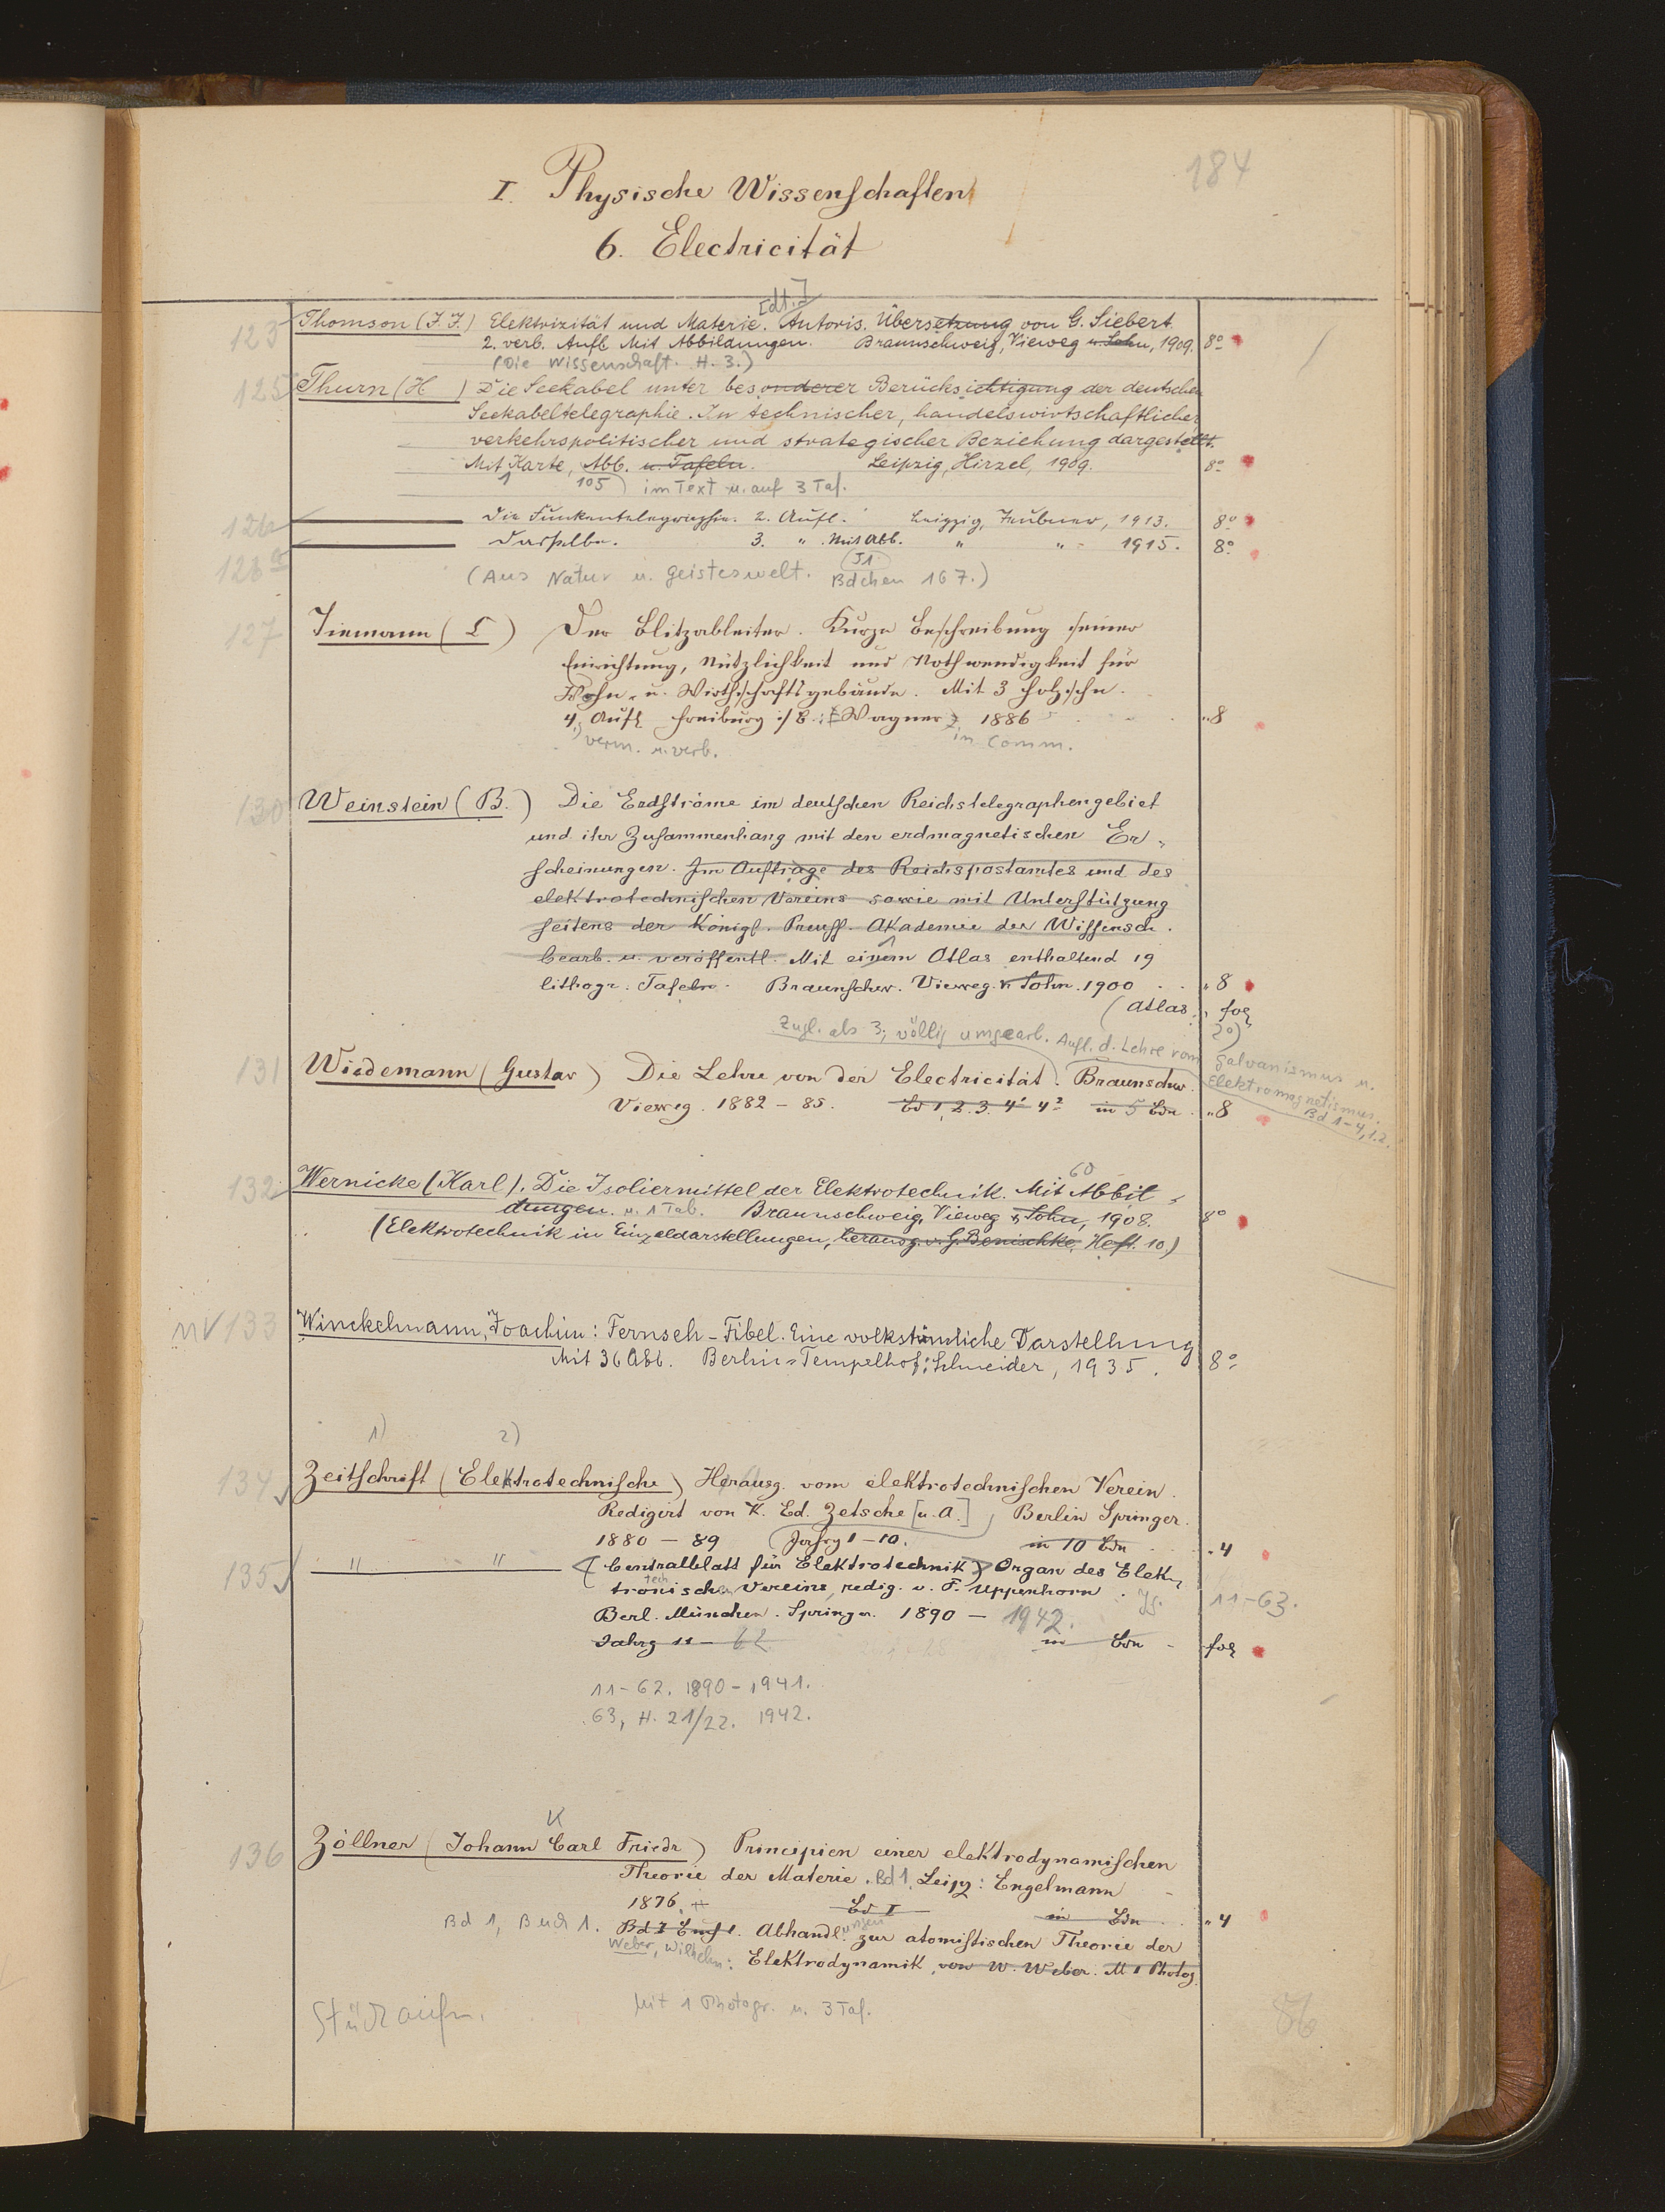 184
I. Physische Wissenschaften
6. Electricität
[dt.]
123 Thomson (J. J.) Elektrizität und Materie. Autoris. Übersetzung von G. Siebert.
2. verb. Aufl. Mit Abbildungen. Braunschweig, Vieweg u. Sohn, 1909. 8°
(Die Wissenschaft. H. 3.)
125 Thurn (H ) Die Seekabel unter besonderer Berücksichtigung der deutschen
Seekabeltelegraphie. In technischer, handelswirtschaftlicher,
verkehrspolitischer und strategischer Beziehung dargestellt.
Mit Karte, Abb. u. Tafeln. Leipzig, Hirzel, 1909. 8°
1 105) im Text u. auf 3 Taf.
126 Die Funkentelegraphie. 2. Aufl. Leipzig, Teubner, 1913. 8°
128a Dasselbe. 3. " Mit Abb. " " 1915. 8°
51
(Aus Natur u. Geisteswelt. Bdchen 167.)
127 Tiemann (L ) Der Blitzableiter. Kurze Beschreibung seiner
Einrichtung, Nützlichkeit und Nothwendigkeit für
Wohn- u. Wirthschaftsgebäude. Mit 3 Holzschn.
4. Aufl Freiburg i/B.: Wagner 1886 8
verm. u. verb. in Comm.
130 Weinstein (B. ) Die Erdströme im deutschen Reichstelegraphengebiet
und ihr Zusammenhang mit den erdmagnetischen Er-
scheinungen. Im Auftrage des Reichspostamtes und des
elektrotechnischen Vereins sowie mit Unterstützung
seitens der Königl. Preuss. Akademie der Wissensch.
bearb. u. veröffentl. Mit einem Atlas enthaltend 19
lithogr. Tafeln. Braunschw. Vieweg u. Sohn. 1900 8
(Atlas: fol
2°)
Zugl. als 3., völlig umgearb. Aufl. d. Lehre vom Galvanismus u. Elektromagnetismus.
Bd 1-4,1.2.
131 Wiedemann (Gustav) Die Lehre von der Electricität. Braunschw.
Vieweg. 1882 - 85. Bd 1, 2. 3. 4¹ 4² in 5 Bdn. 8
60
132 Wernicke (Karl). Die Isoliermittel der Elektrotechnik. Mit Abbil-
dungen. u. 1 Tab. Braunschweig, Vieweg u. Sohn, 1908. 8°
(Elektrotechnik in Einzeldarstellungen, herausg. v. G. Benischke, Heft. 10.)
NV 133 Winckelmann, Joachim: Fernseh-Fibel. Eine volkstümliche Darstellung
Mit 36 Abb. Berlin-Tempelhof: Schneider, 1935. 8°
1) 2)
134 Zeitschrift (Elektrotechnische) Herausg. vom elektrotechnischen Verein.
Redigirt von K. Ed. Zetsche [u. A.] Berlin Springer.
1880 - 89 Jahrg 1 - 10. in 10 Bdn 4
135 " " (Centralblatt für Elektrotechnik) Organ des Elek-
tech
tronischen Vereins, redig. v. F. Uppenborn. Jg. 11-63.
Berl. München. Springer. 1890 - 1942.
Jahrg 11 - 62 in Bdn fol
11-62. 1890-1941.
63, H. 21/22. 1942.
K
136 Zöllner (Johann Carl Friedr) Principien einer elektrodynamischen
Theorie der Materie. Bd 1. Leipz: Engelmann
1876. Bd I in Bdn 4
Bd 1, Buch 1. Bd I Abhandlungen zur atomistischen Theorie der
Weber, Wilhelm: Elektrodynamik, von W. Weber. M 1 Photog.
Mit 1 Photogr. u. 3 Taf.